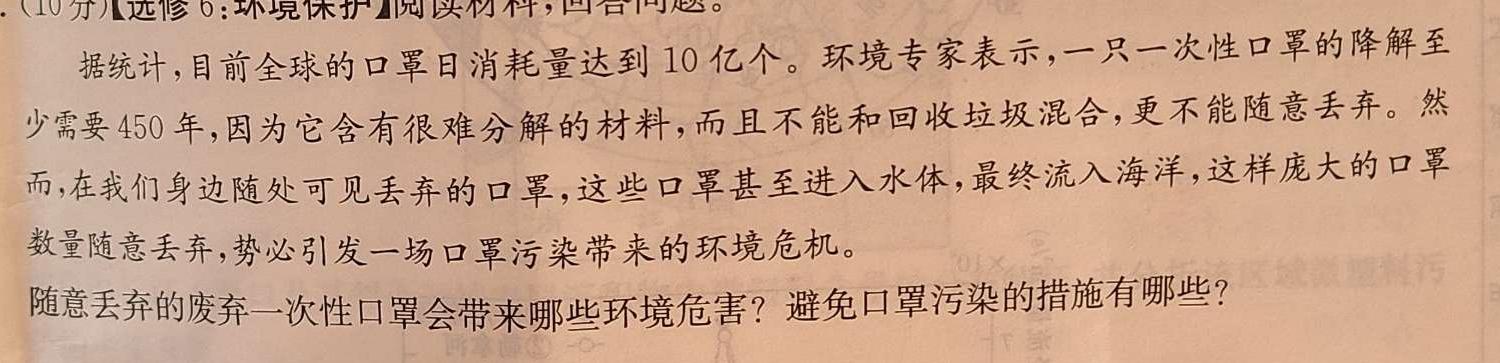 .(10分)【选修6:环境保护】阅读材料,回答问题。
据统计,目前全球的口罩日消耗量达到10亿个。环境专家表示,一只一次性口罩的降解至
少需要450年,因为它含有很难分解的材料,而且不能和回收垃圾混合,更不能随意丢弃。然
而,在我们身边随处可见丢弃的口罩,这些口罩甚至进入水体,最终流入海洋,这样庞大的口罩
数量随意丢弃,势必引发一场口罩污染带来的环境危机。
随意丢弃的废弃一次性口罩会带来哪些环境危害?避免口罩污染的措施有哪些?